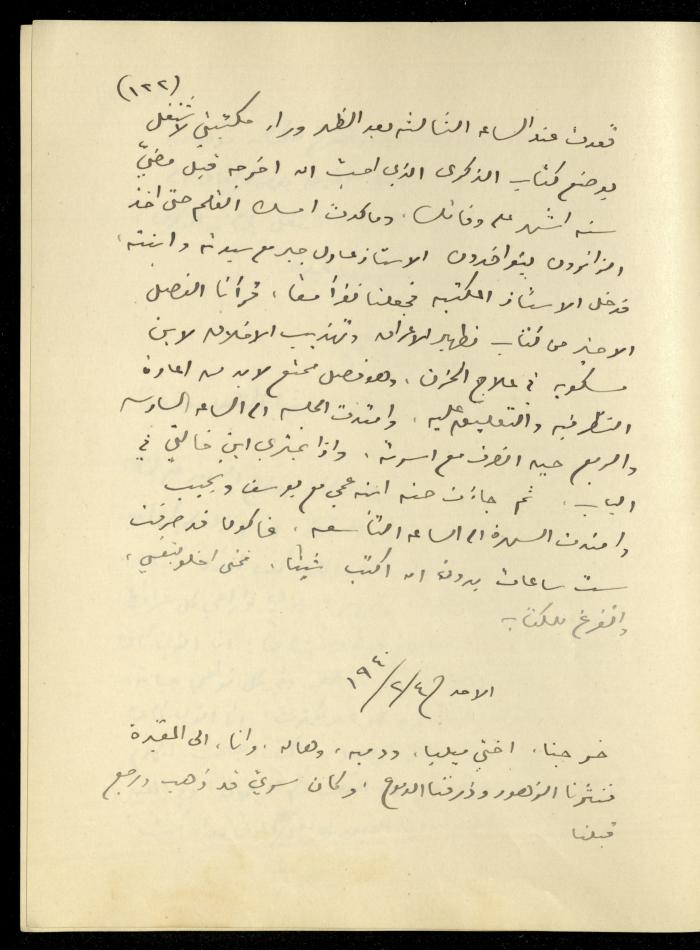 (١٢٢)
قعدت عند الساعه الثالثه بعد الظهر وراء مكتبتي لاشتغل
بوضع كتاب الذكرى الذي احببت ان اخرجه قبل مضيّ
سنه اشهر على وفاتك. وما كدت امسك القلم حتى اخذ
الزائرون يتوافدون الاستاذ عادل جبر مع سيدته وابنته،
فدخل الاستاذ المكتبه فجعلنا نقرأ معا، قرأنا الفصل
الاخير من كتاب تطهير الاعراق وتهذيب الاخلاق لابن
مسكويه في علاج الحزن، وهو فصل ممتع لابد من اعادة
النظر فيه والتعليق عليه. وامتدت الجلسه الى الساعه السادسه
والربع حين انصرف مع اسرته، واذا بابن خالتي في
الباب. ثم جاءت حنه ابنة عمي مع يوسف ونجيب
وامتدت السهرة الى الساعه التاسعه، فاكون قد صرفت
ست ساعات بدون ان اكتب شيئا، فمتى اخلو لنفسي،
واتفرغ للكتابه
الاحد ٤/٢/١٩٤٠
خرجنا، اختي ميليا، ودميه، وهاله، وانا، الى المقبرة
فنثرنا الزهور وذرفنا الدموع، وكان سري قد ذهب ورجع
قبلنا